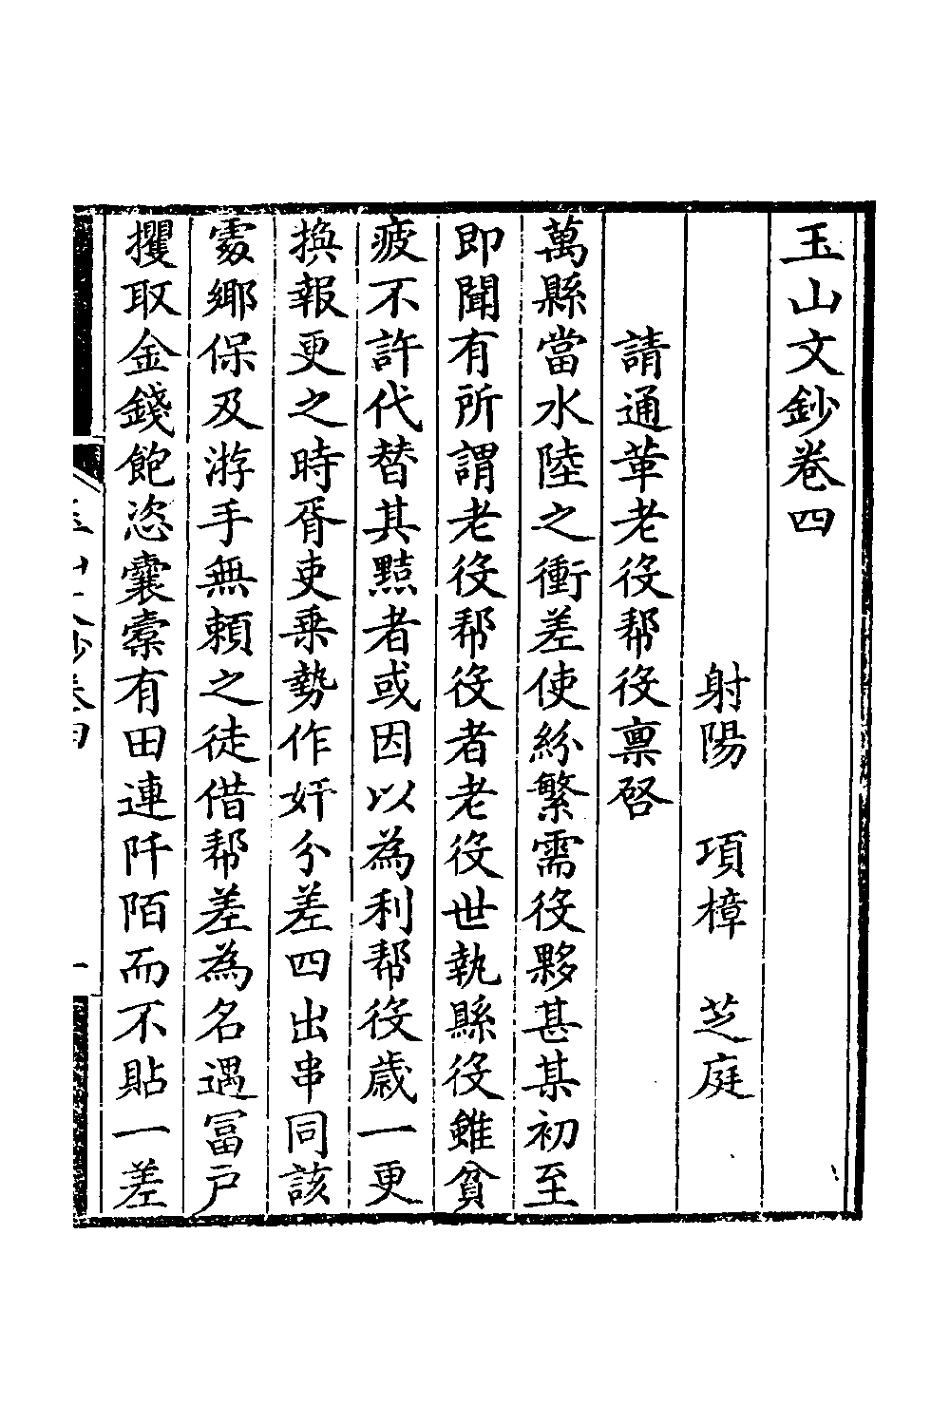 玉山文鈔卷四
射陽 項樟 芝庭
請通革老役帮役稟啓
萬縣當水陸之衝差使紛繁需役夥甚某初至
即聞有所謂老役帮役者老役世執縣役雖貧
疲不許代替其黠者或因以為利帮役歲一更
換報更之時胥吏乗勢作奸分差四出串同該
處鄉保及游手無賴之徒借帮差為名遇冨戶
攫取金錢飽恣囊橐有田連阡陌而不貼一差
玉山文鈔卷四
一